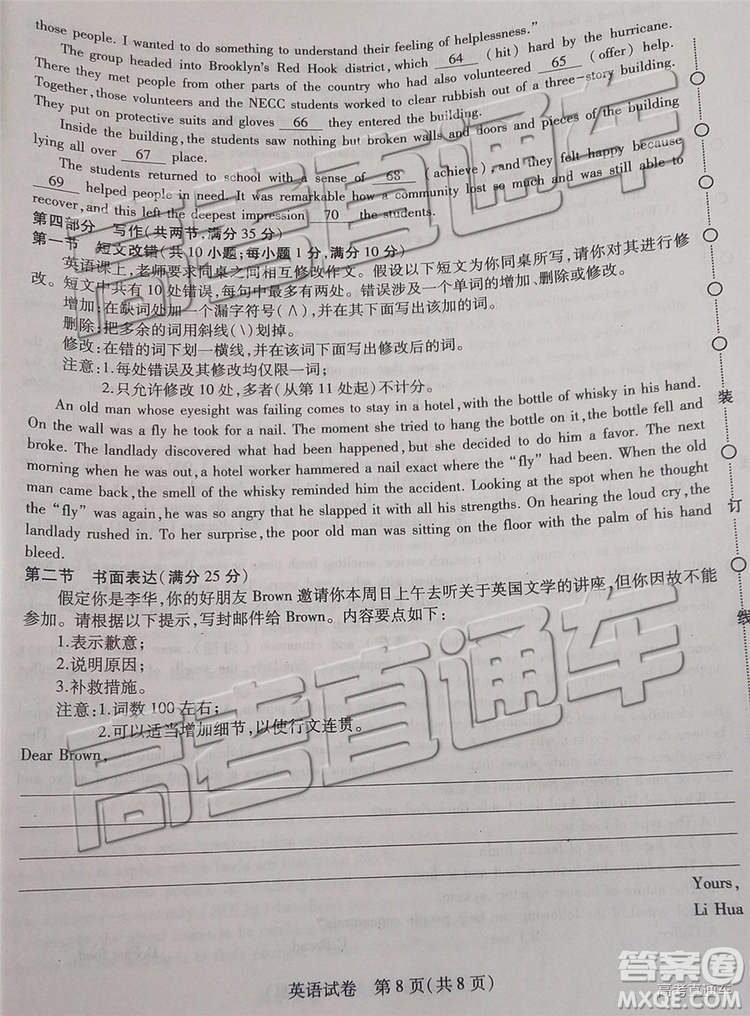 those people. I wanted to do something to understand their feeling of helplessness."
The group headed into Brooklyn's Red Hook district, which 64 (hit) hard by the hurricane.
There they met people from other parts of the country who had also volunteered 65 (offer) help.
Together, those volunteers and the NECC students worked to clear rubbish out of a three-story building.
They put on protective suits and gloves 66 they entered the building.
Inside the building, the students saw nothing but broken walls and doors and pieces of the building
lying all over 67 place.
The students returned to school with a sense of 68 (achieve), and they felt happy because
69 helped people in need. It was remarkable how a community lost so much and was trying to
recover, and this left the deepest impression 70 the students.
第四部分 写作(共两节,满分 35 分)
第一节 短文改错(共 10 小题;每小题 1 分,满分 10 分)
英语课上,老师要求同桌之间相互修改作文。假设以下短文为你同桌所写,请你对其进行修
改。短文中共有 10 处错误,每句中最多有两处。错误涉及一个单词的增加、删除或修改。
增加:在缺词处加一个漏字符号(∧),并在其下面写出该加的词。
删除:把多余的词用斜线(\)划掉。
修改:在错的词下划一横线,并在该词下面写出修改后的词。
注意:1.每处错误及其修改均仅限一词;
2.只允许修改 10 处,多者(从第 11 处起)不计分。
An old man whose eyesight was failing comes to stay in a hotel, with the bottle of whisky in his hand.
On the wall was a fly he took for a nail. The moment she tried to hang the bottle on it, the bottle fell and
broke. The landlady discovered what had been happened, but she decided to do him a favor. The next
morning when he was out, a hotel worker hammered a nail exact where the "fly" had been. When the old
man came back, the smell of the whisky reminded him the accident. Looking at the spot when he thought
the "fly" was again, he was so angry that he slapped it with all his strengths. On hearing the loud cry, the
landlady rushed in. To her surprise, the poor old man was sitting on the floor with the palm of his hand
bleed.
第二节 书面表达(满分 25 分)
假定你是李华,你的好朋友 Brown 邀请你本周日上午去听关于英国文学的讲座,但你因故不能
参加。请根据以下提示,写封邮件给 Brown。内容要点如下:
1.表示歉意;
2.说明原因;
3.补救措施。
注意:1.词数 100 左右;
2.可以适当增加细节,以使行文连贯。
Dear Brown,
Yours,
Li Hua
英语试卷 第 8 页(共 8 页)
装
订
线
高考直通车
高考直通车
答案圈
高考直通车
MXQE.COM